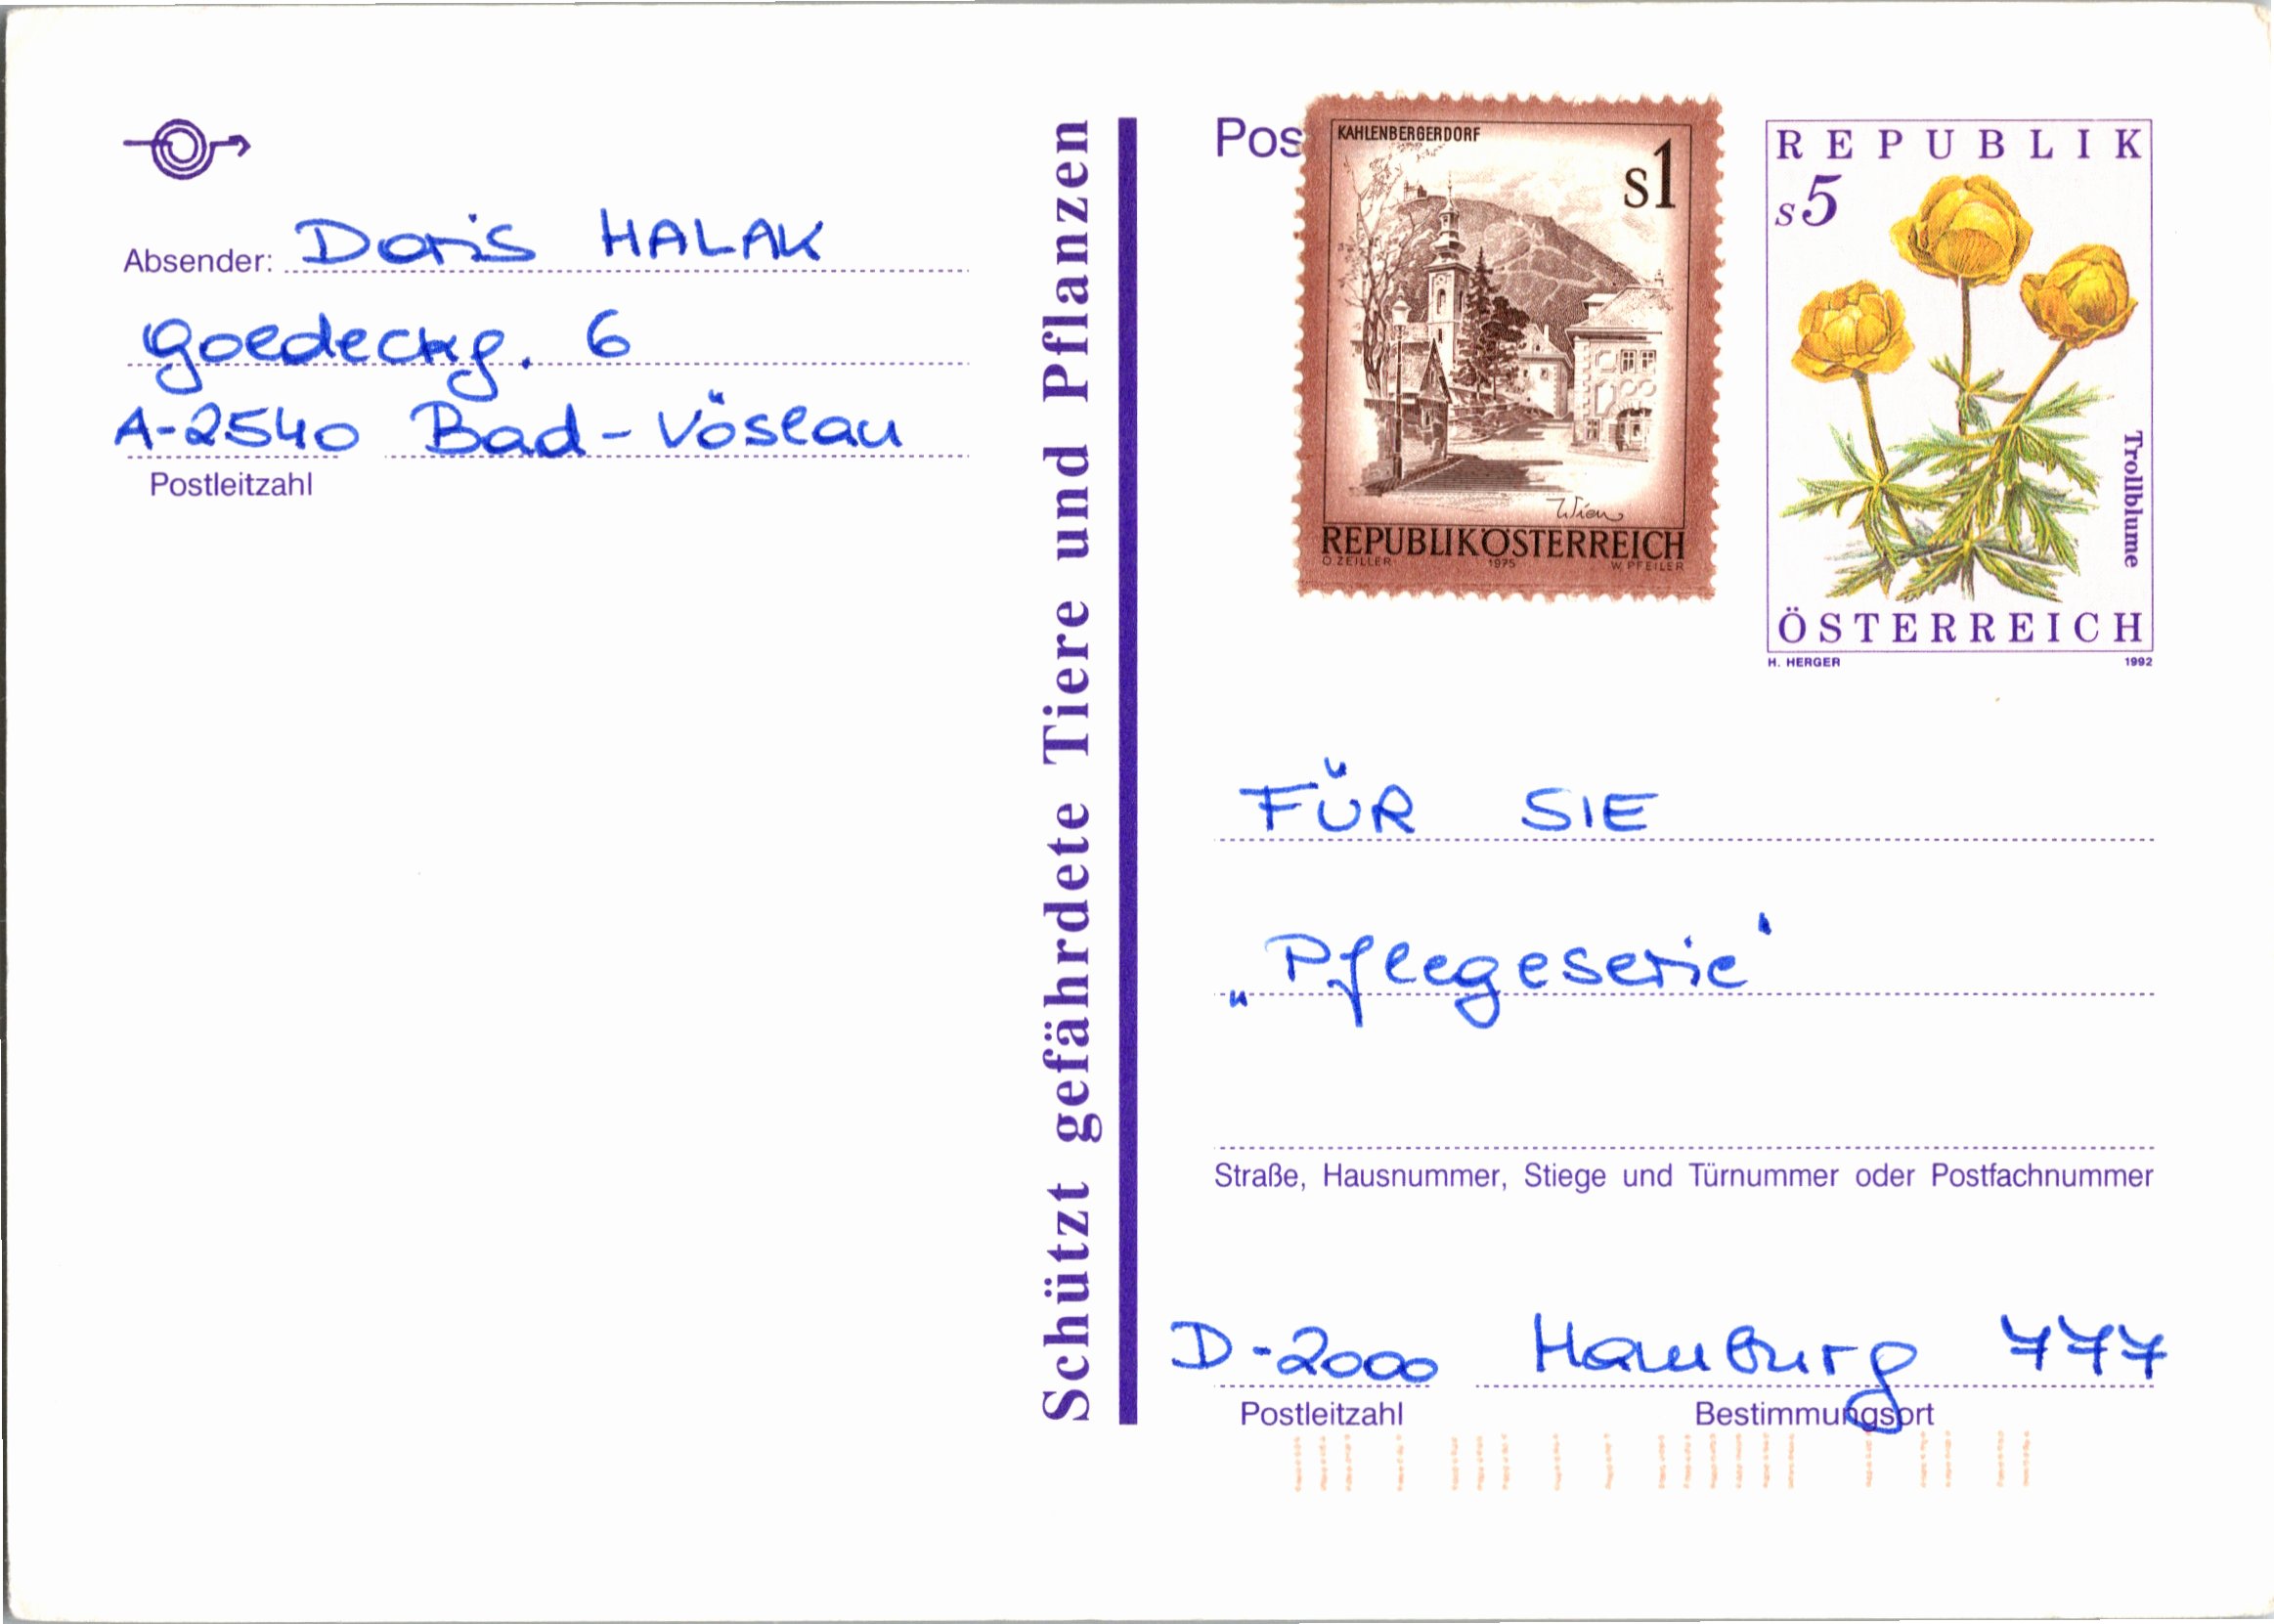 Absender: Doris HALAK
Goedeckeg. 6
A-2540 Bad-Vöslau
Postleitzahl
Schützt gefährdete Tiere und Pflanzen
Pos
KAHLENBERGERDORF
S1
Wien
REPUBLIK ÖSTERREICH
O. ZEILLER 1975 W. PFEILER
REPUBLIK
S5
Trollblume
ÖSTERREICH
H. HERGER 1992
FÜR SIE
„Pflegeserie"
Straße, Hausnummer, Stiege und Türnummer oder Postfachnummer
D-2000 Hamburg 777
Postleitzahl Bestimmungsort